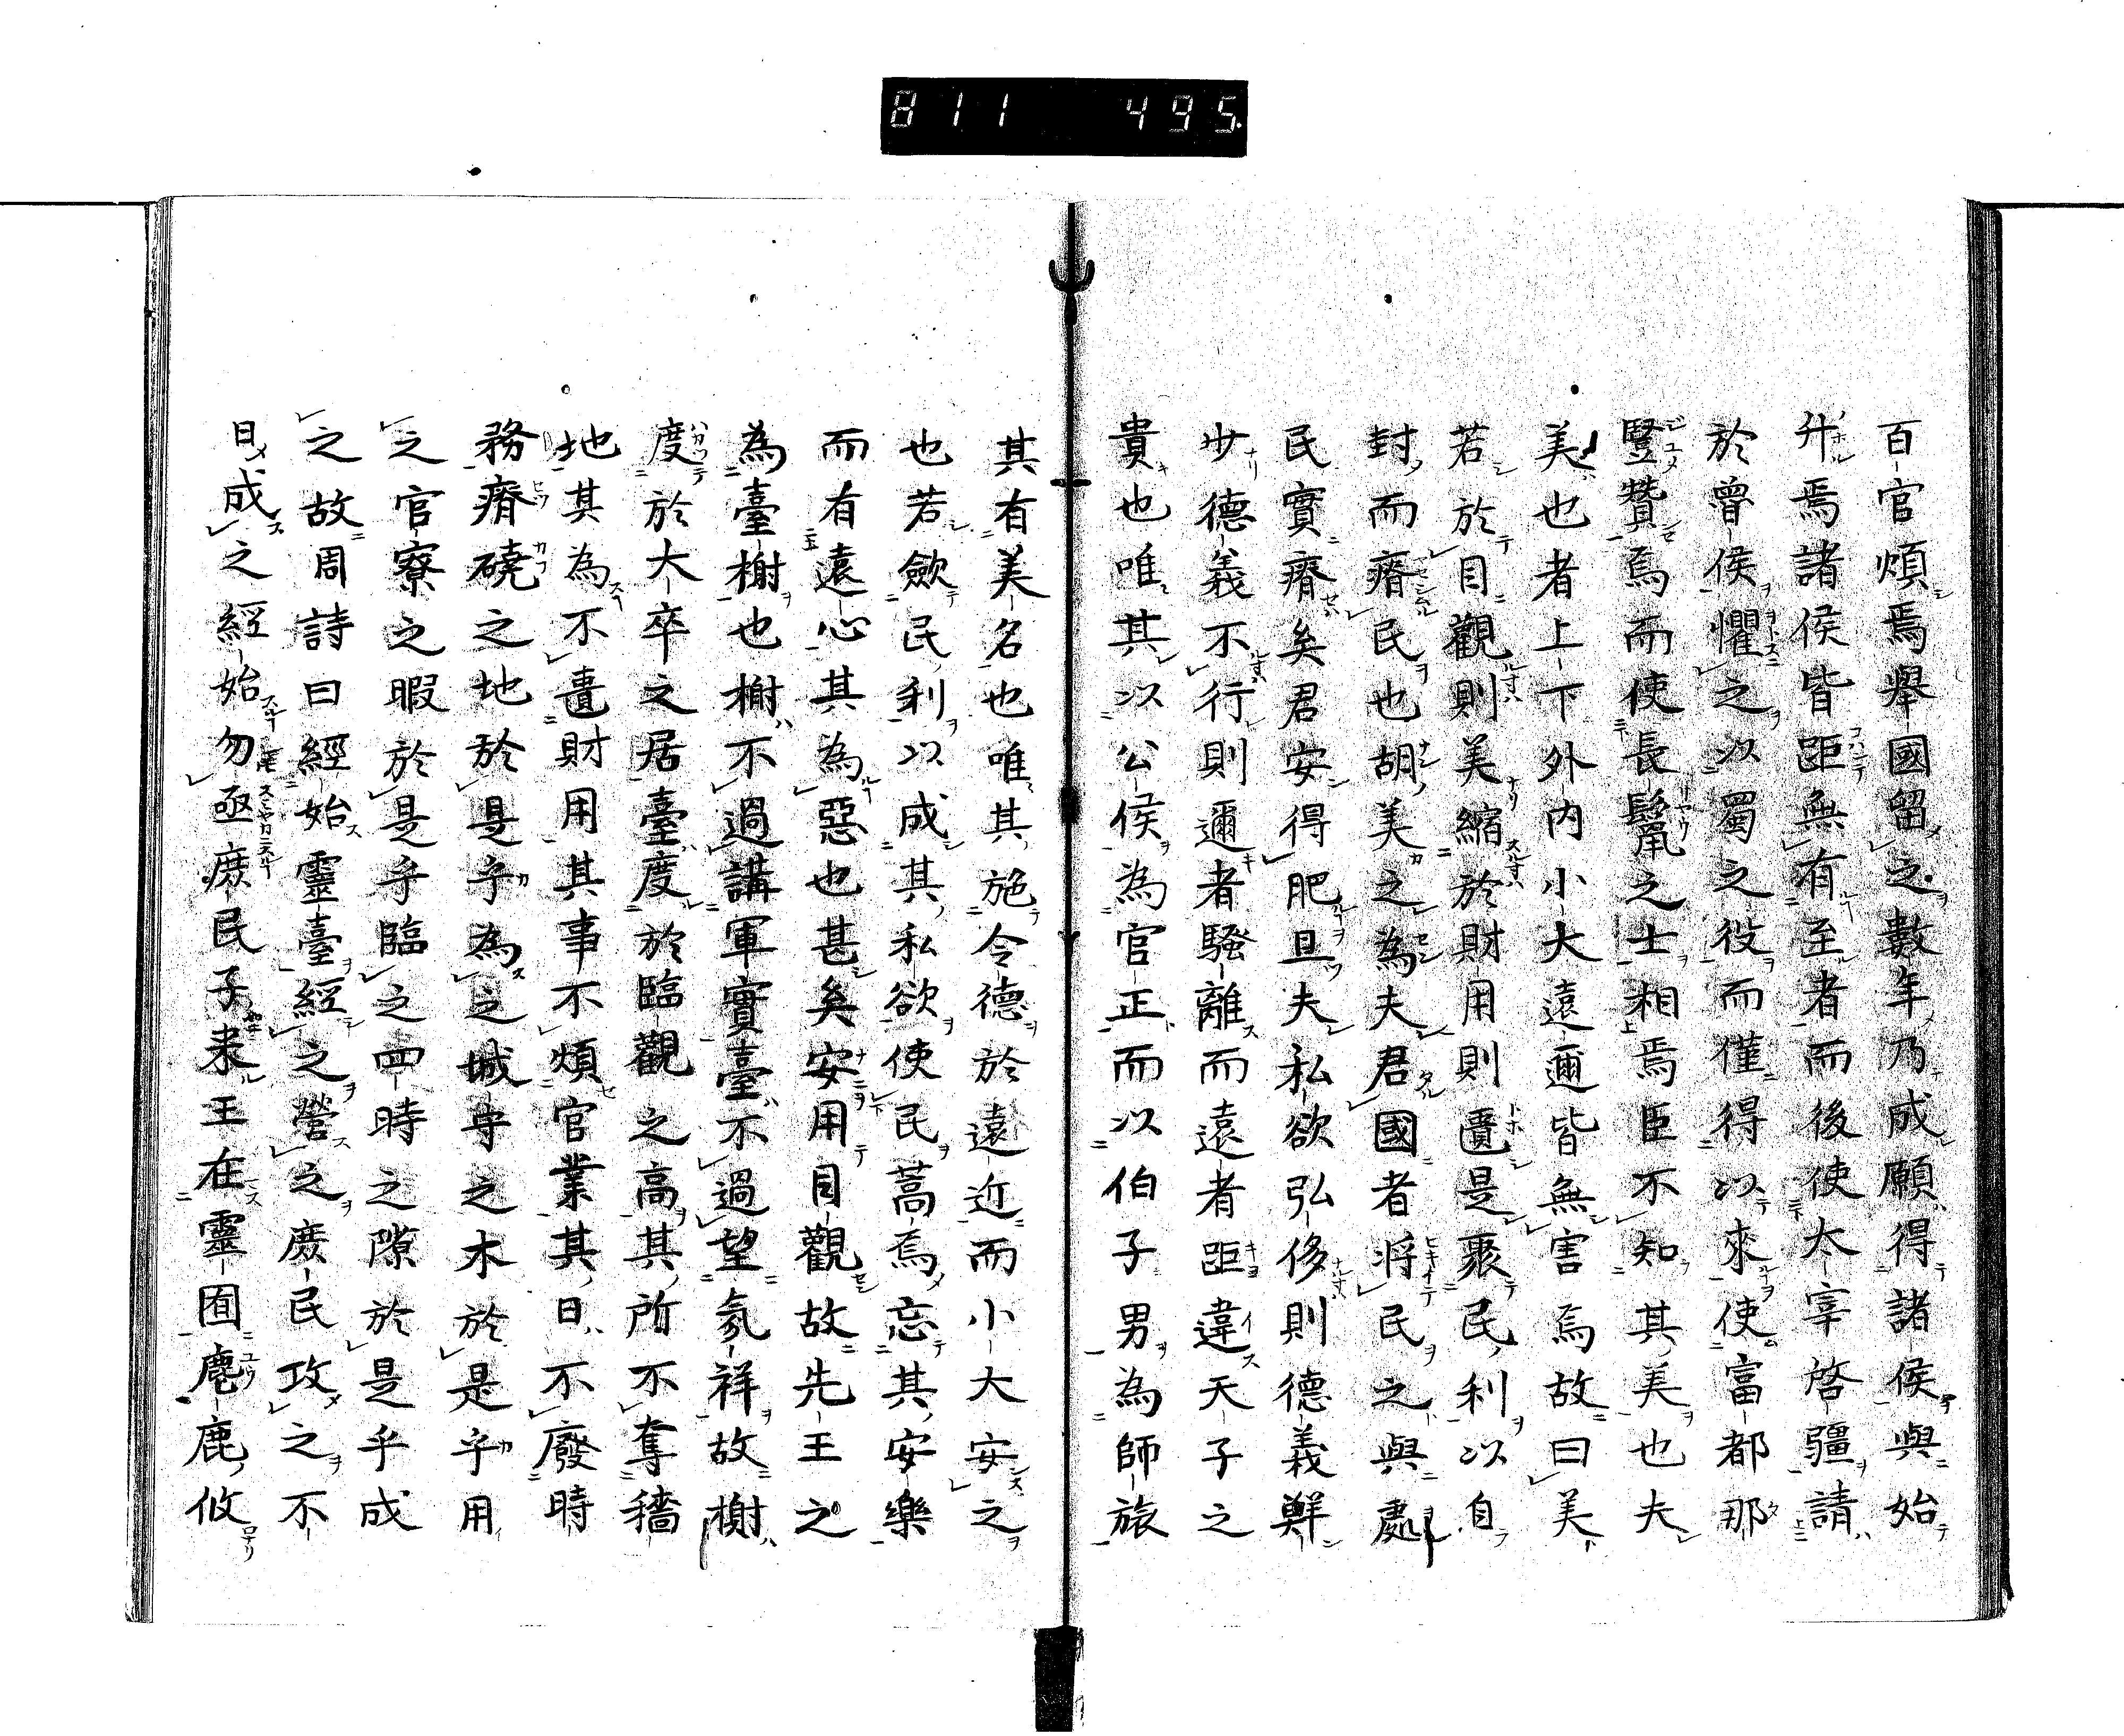 811 495
百官煩焉舉國留之數年乃成願得諸侯與始
升焉諸侯皆距無有至者而後使太宰啓疆請
於魯侯懼之以蜀之役而僅得以來使富都那
豎贊焉而使長鬣之士相焉臣不知其美也夫
美也者上下外内小大遠邇皆無害焉故曰美
若於目觀則美縮於財用則匱是聚民利以自
封而瘠民也胡美之為夫君國者将民之與處
民實瘠矣君安得肥且夫私欲弘侈則德義鮮
少德義不行則邇者騷離而遠者距違天子之
貴也唯其以公侯為官正而以伯子男為師旅
其有美名也唯其施令德於遠近而小大安之
也若歛民利以成其私欲使民蒿焉忘其安樂
而有遠心其為惡也甚矣安用目觀故先王之
為臺榭也榭不過講軍實臺不過望氛祥故榭
度於大卒之居臺度於臨觀之高其所不奪穡
地其為不匱財用其事不煩官業其日不廢時
務瘠磽之地於是乎為之城守之木於是乎用
之官寮之暇於是乎臨之四時之隙於是乎成
之故周詩曰經始靈臺經之營之庶民攻之不
日成之經始勿亟庶民子来王在靈囿麀鹿攸